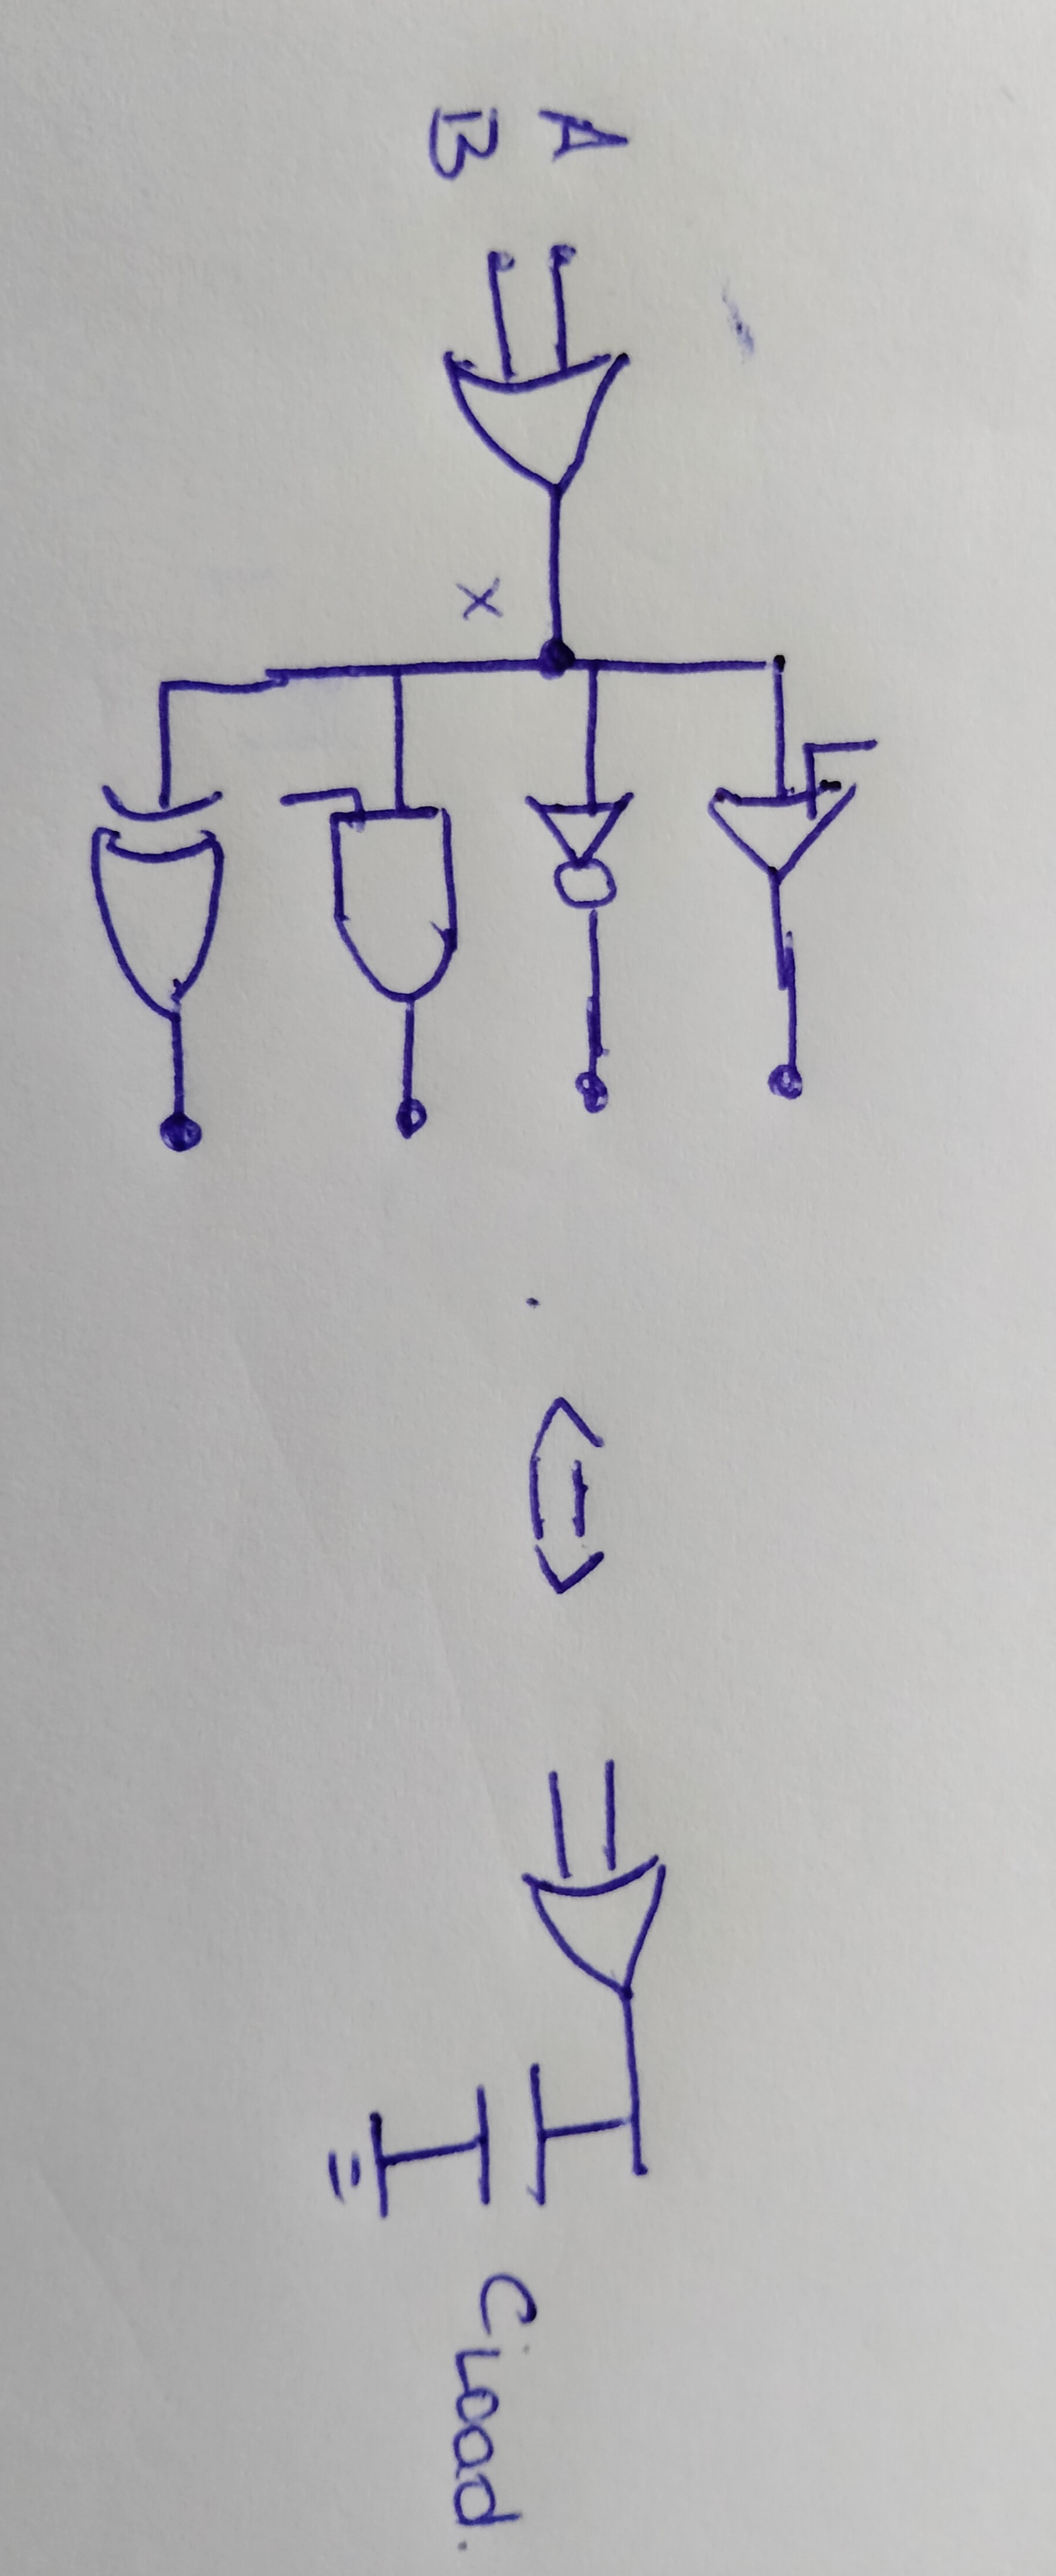 A
B
X
CLoad.